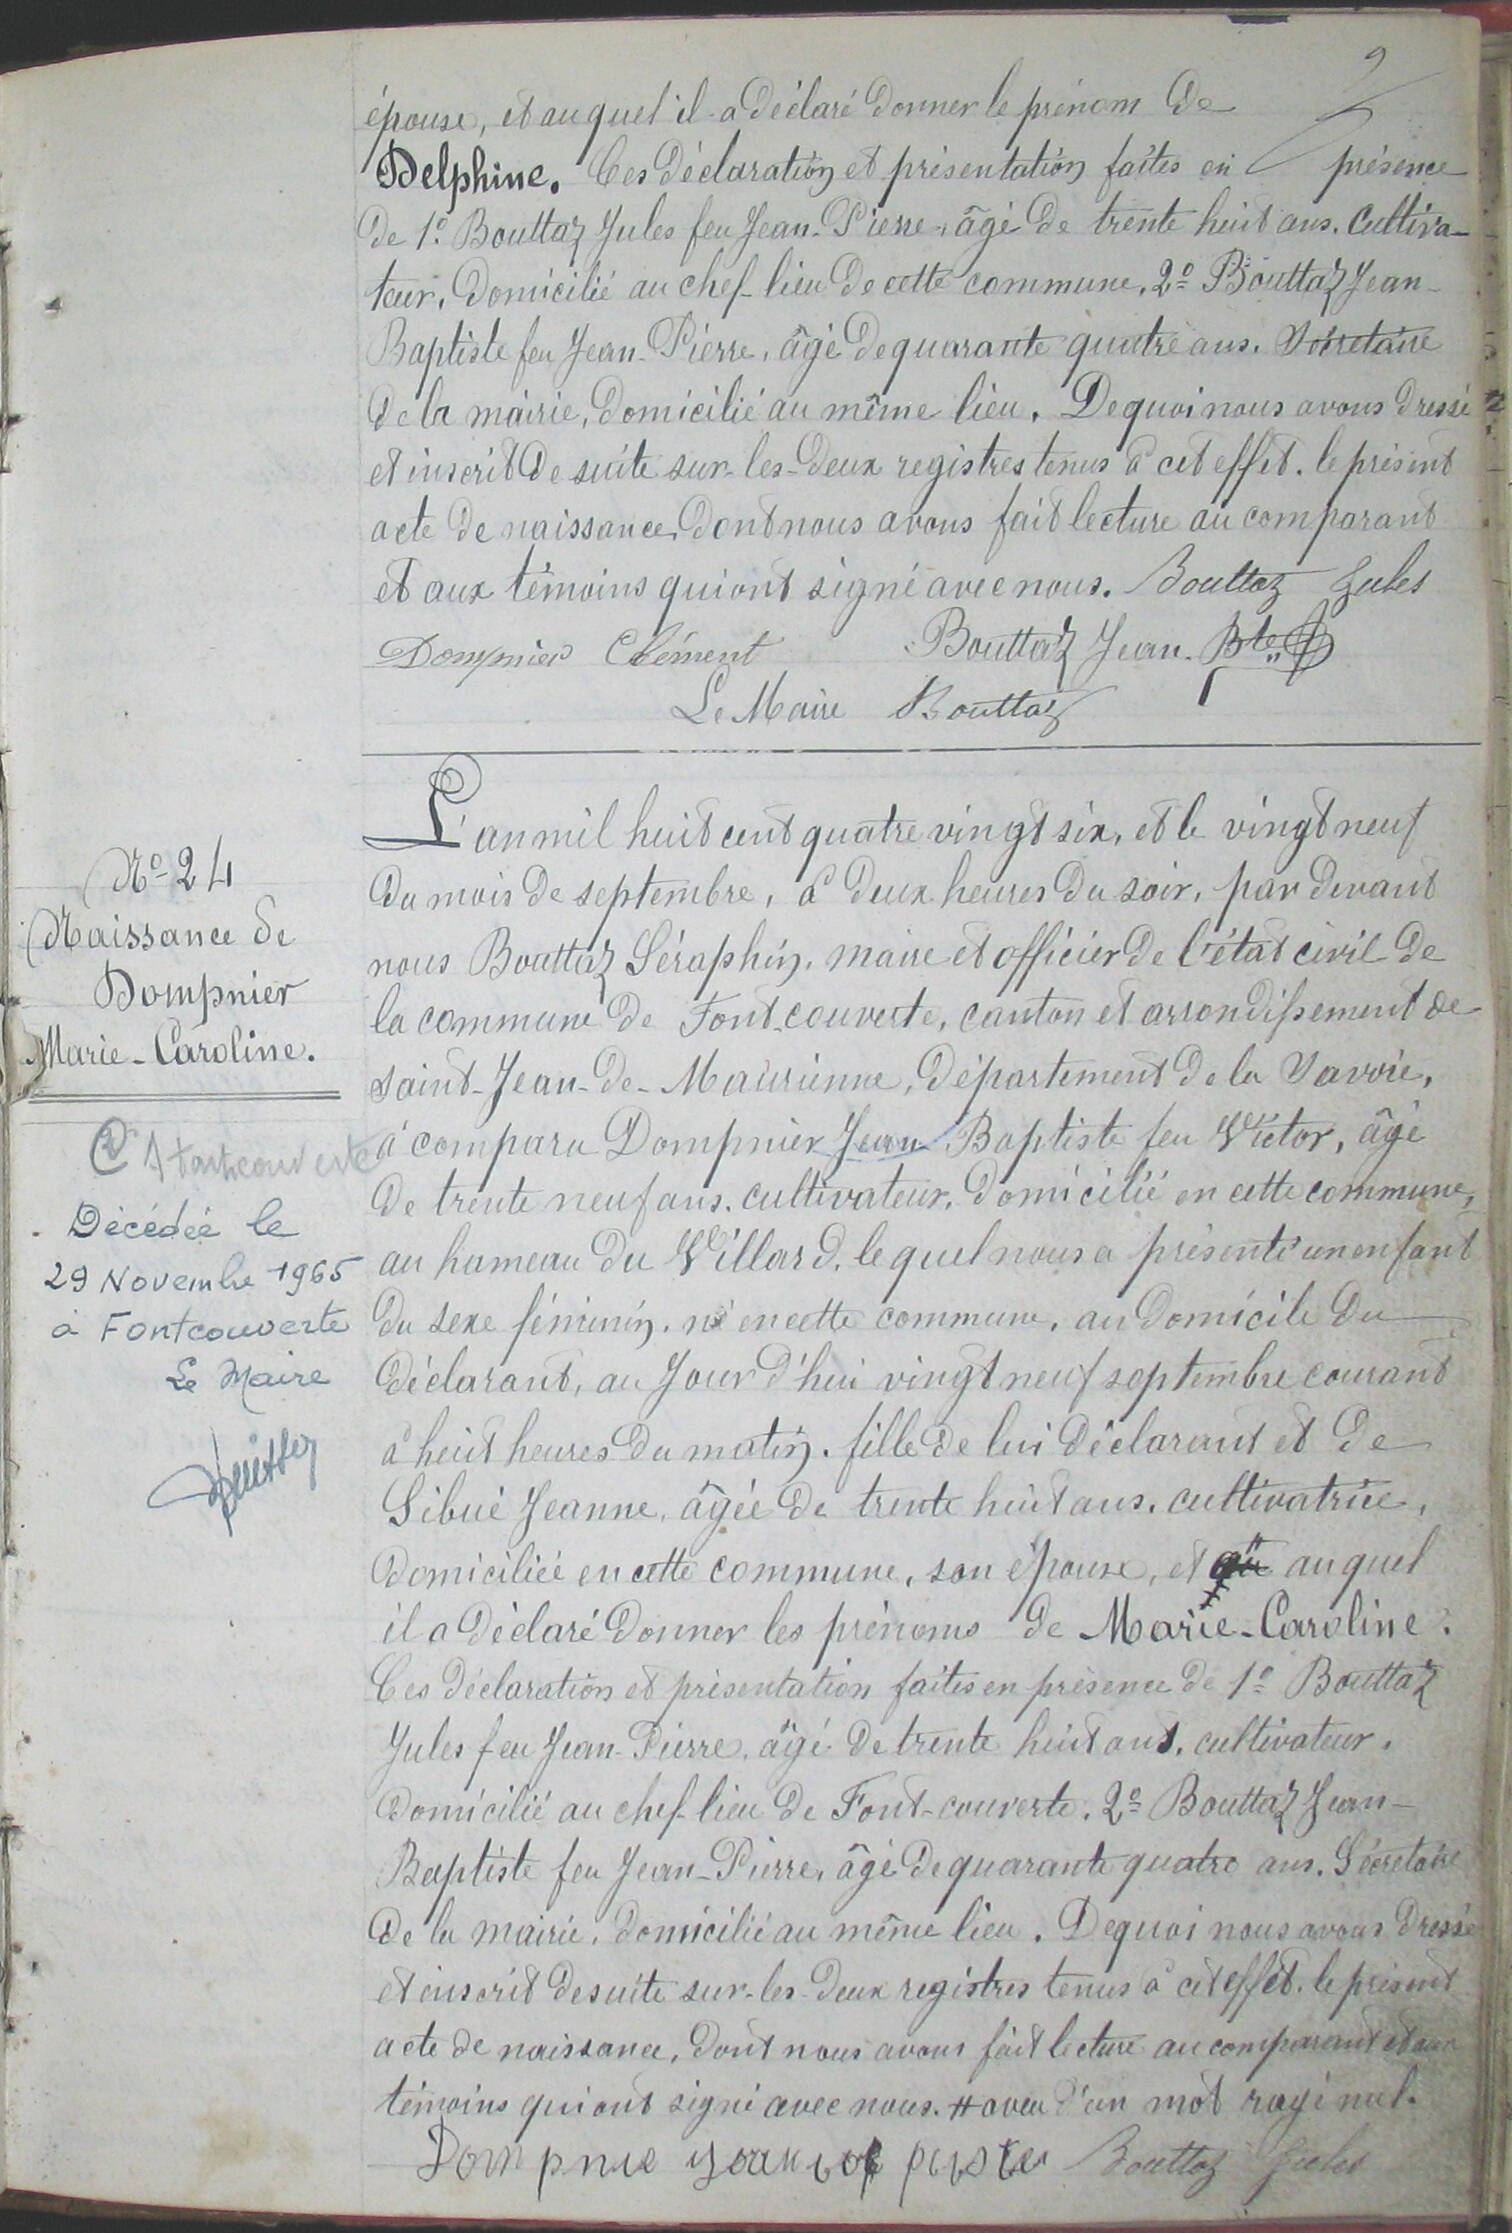 9
épouse, et auquel il a déclaré donner le prénom de
Delphine. Ces déclaration et présentation faites en présence
de 1º Bouttaz Jules feu Jean-Pierre, âgé de trente huit ans. Cultiva-
teur, domicilié au chef-lieu de cette commune, 2º Bouttaz Jean-
Baptiste feu Jean-Pierre, âgé de quarante quatre ans. Sécretaire
de la mairie, domicilié au même lieu. De quoi nous avons dressé
et inscrit de suite sur-les-deux registres tenus à cet effet. le présent
acte de naissance, dont nous avons fait lecture au comparant
et aux témoins qui ont signé avec nous. Bouttaz Jules
Dompnier Clément Bouttaz Jean-Bte
Le Maire Bouttaz
Nº 24
Naissance de
Dompnier
Marie-Caroline.
Fontcouverte
Décédée le
29 Novembre 1965
à Fontcouverte
Le Maire
L'an mil huit cent quatre vingt six, et le vingt neuf
du mois de septembre, à deux heures du soir, par devant
nous Bouttaz Séraphin, maire et officier de l'état civil de
la commune de Font-couverte, canton et arrondissement de
saint-Jean-de-Maurienne, Département de la Savoie,
à comparu Dompnier Jean Baptiste feu Victor, âgé
de trente neuf ans. cultivateur, domicilié en cette commune,
au hameau du Villard, lequel nous a présenté un enfant
du sexe féminin, né en cette commune, au domicile du
déclarant, au Jour d'hui vingt neuf septembre courant
à huit heures du matin. fille de lui déclarant et de
Sibué Jeanne, âgée de trente huit ans. cultivatrice,
domiciliée en cette commune, son épouse, et auquel
il a déclaré donner les prénoms de Marie-Caroline.
Ces déclaration et présentation faites en présence de 1º Bouttaz
Jules feu Jean-Pierre, âgé de trente huit ans. cultivateur.
domicilié au chef-lieu de Font-couverte. 2º Bouttaz Jean-
Baptiste feu Jean-Pierre, âgé de quarante quatre ans. Sécretaire
de la mairie, domicilié au même lieu. De quoi nous avons dressé
et inscrit de suite sur-les-deux registres tenus à cet effet. le présent
acte de naissance, dont nous avons fait lecture au comparant et aux
témoins qui ont signé avec nous. # aveu d'un mot rayé nul.
Dompnie Bouttaz Jules